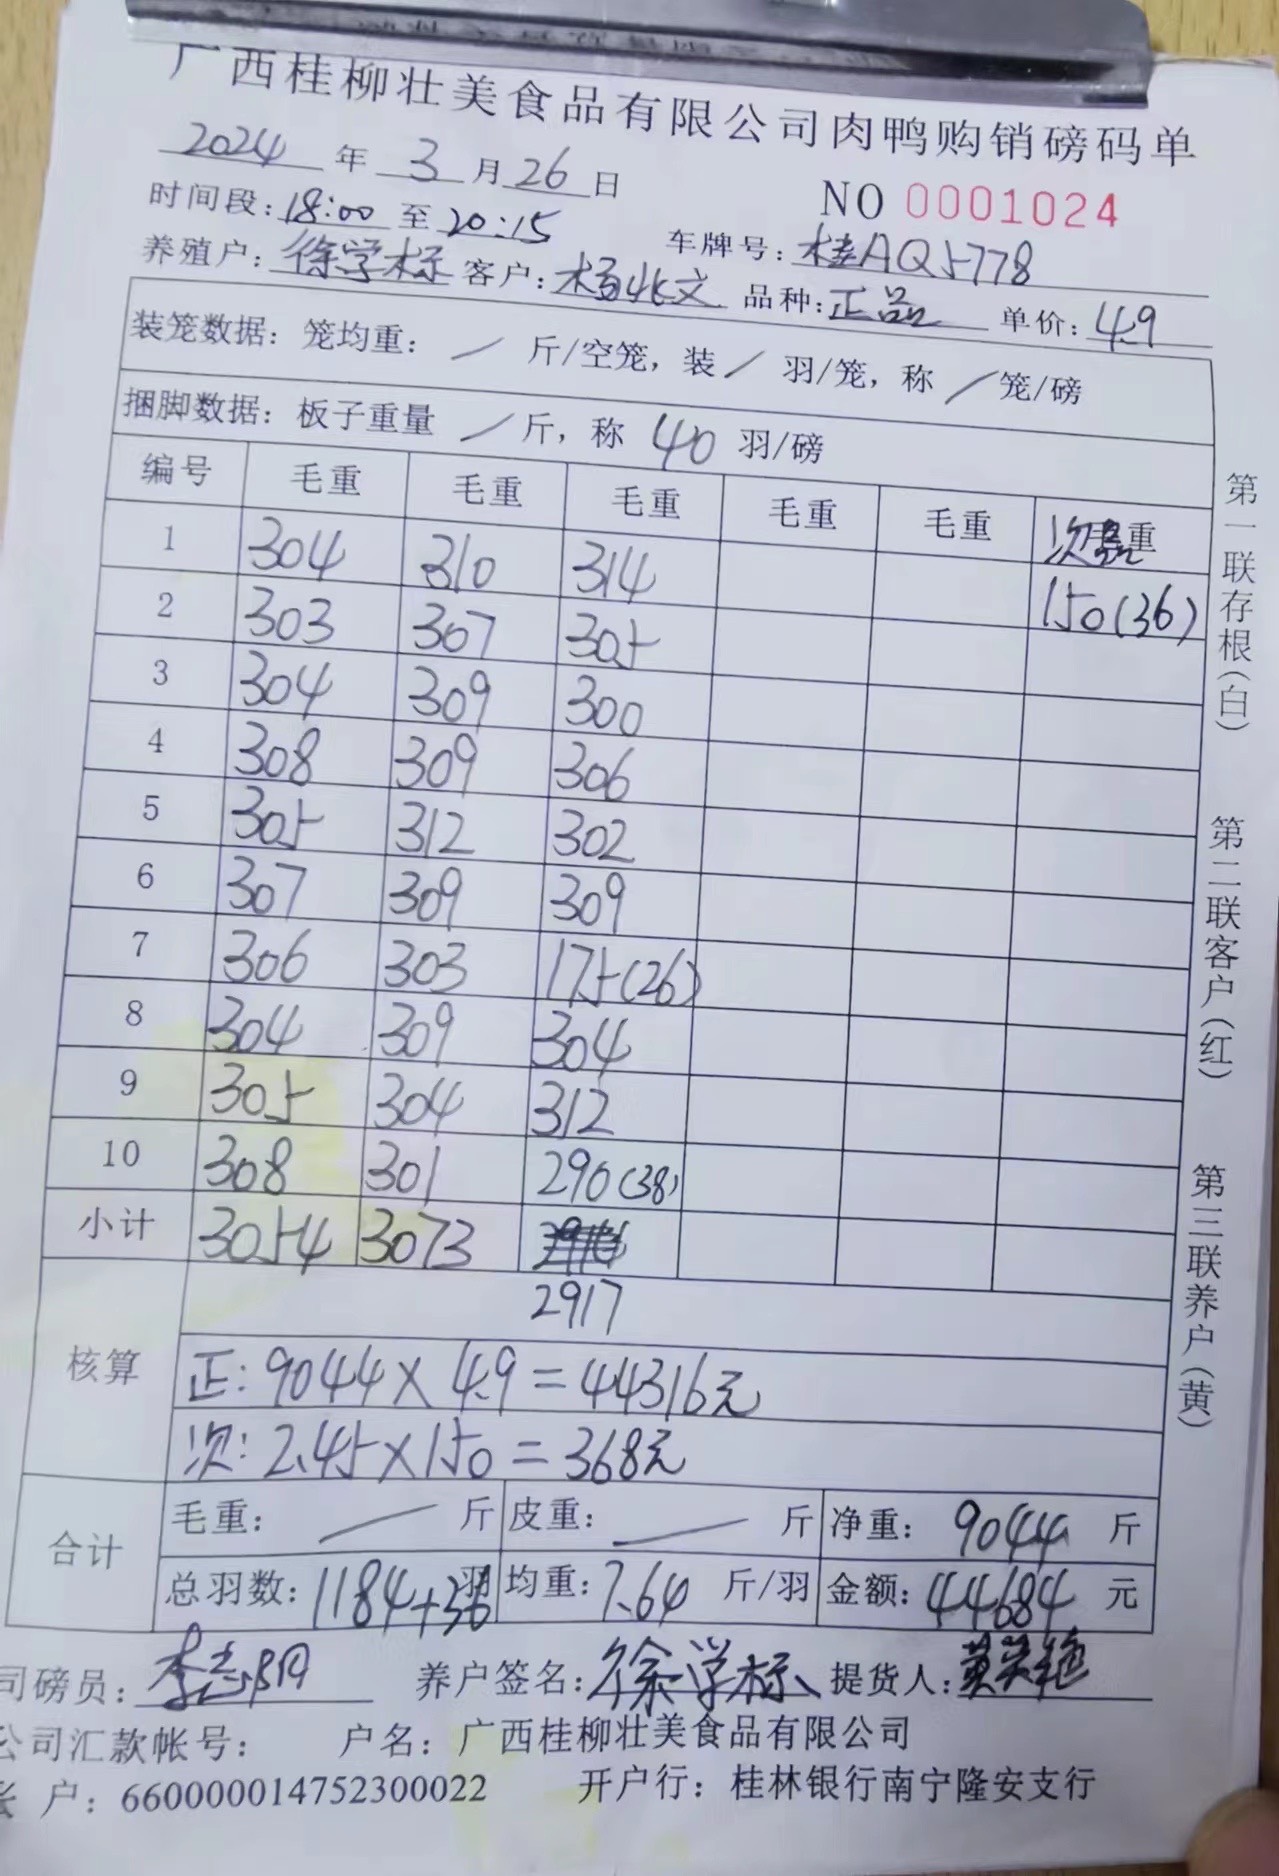 广西桂柳壮美食品有限公司肉鸭购销磅码单
2024 年 3 月 26 日
NO 0001024
时间段: 18:00 至 20:15 车牌号: 桂AQ5778
养殖户: 徐学标 客户: 杨兆文 品种: 正品 单价: 4.9
装笼数据: 笼均重: / 斤/空笼, 装 / 羽/笼, 称 / 笼/磅
捆脚数据: 板子重量 / 斤, 称 40 羽/磅
编号 毛重 毛重 毛重 毛重 毛重 次品重
1 304 310 314 150(36)
2 303 307 305
3 304 309 300
4 308 309 306
5 305 312 302
6 307 309 309
7 306 303 175(26)
8 304 309 304
9 305 304 312
10 308 301 290(38)
小计 3054 3073
2917
核算
正: 9044×4.9=44316元
次: 2.45×150=368元
合计
毛重: / 斤 皮重: / 斤 净重: 9044 斤
总羽数: 1184+36羽 均重: 7.64 斤/羽 金额: 44684 元
司磅员: 养户签名: 徐学标 提货人:
公司汇款帐号: 户名: 广西桂柳壮美食品有限公司
户: 660000014752300022 开户行: 桂林银行南宁隆安支行
第一联存根(白)
第二联客户(红)
第三联养户(黄)